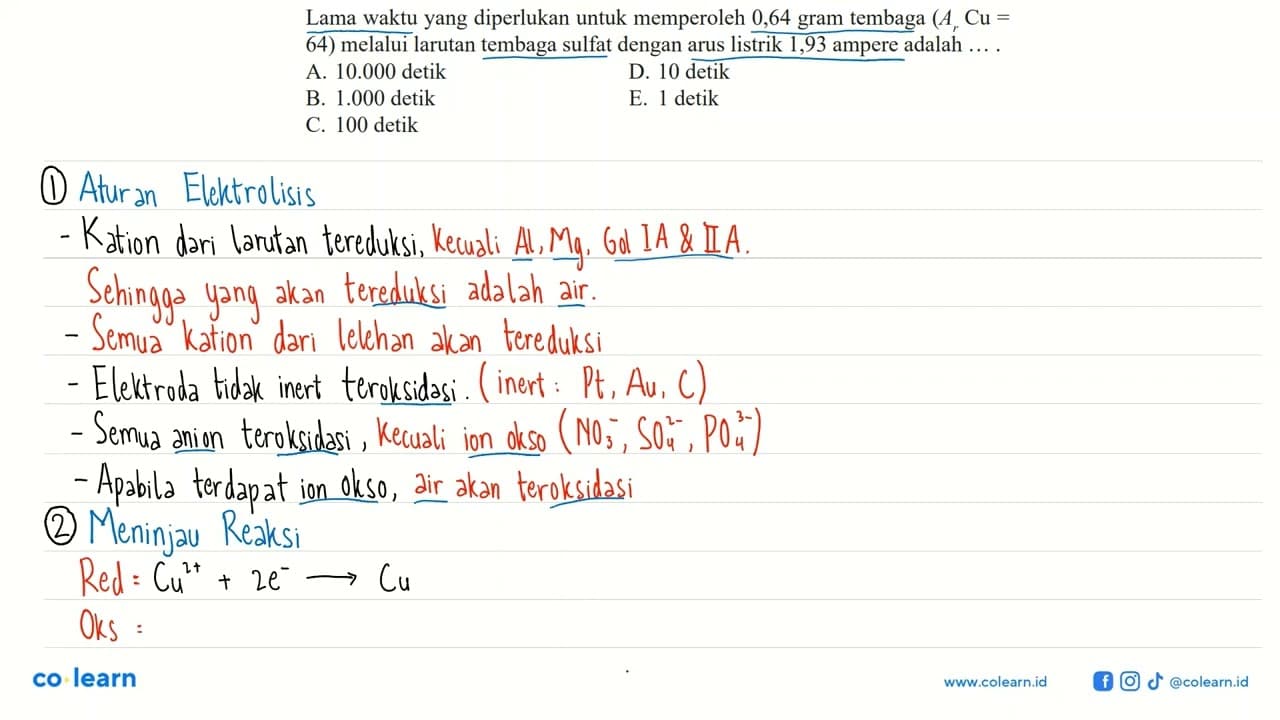 Lama waktu yang diperlukan untuk memperoleh 0,64 gram tembaga (Aᵣ Cu =
64) melalui larutan tembaga sulfat dengan arus listrik 1,93 ampere adalah ... .
A. 10.000 detik D. 10 detik
B. 1.000 detik E. 1 detik
C. 100 detik
① Aturan Elektrolisis
- Kation dari larutan tereduksi, kecuali Al, Mg, Gol IA & IIA.
Sehingga yang akan tereduksi adalah air.
- Semua kation dari lelehan akan tereduksi
- Elektroda tidak inert teroksidasi. (inert : Pt, Au, C)
- Semua anion teroksidasi, kecuali ion okso (NO₃⁻, SO₄²⁻, PO₄³⁻)
- Apabila terdapat ion okso, air akan teroksidasi
② Meninjau Reaksi
Red = Cu²⁺ + 2e⁻ → Cu
Oks =
co learn www.colearn.id @colearn.id